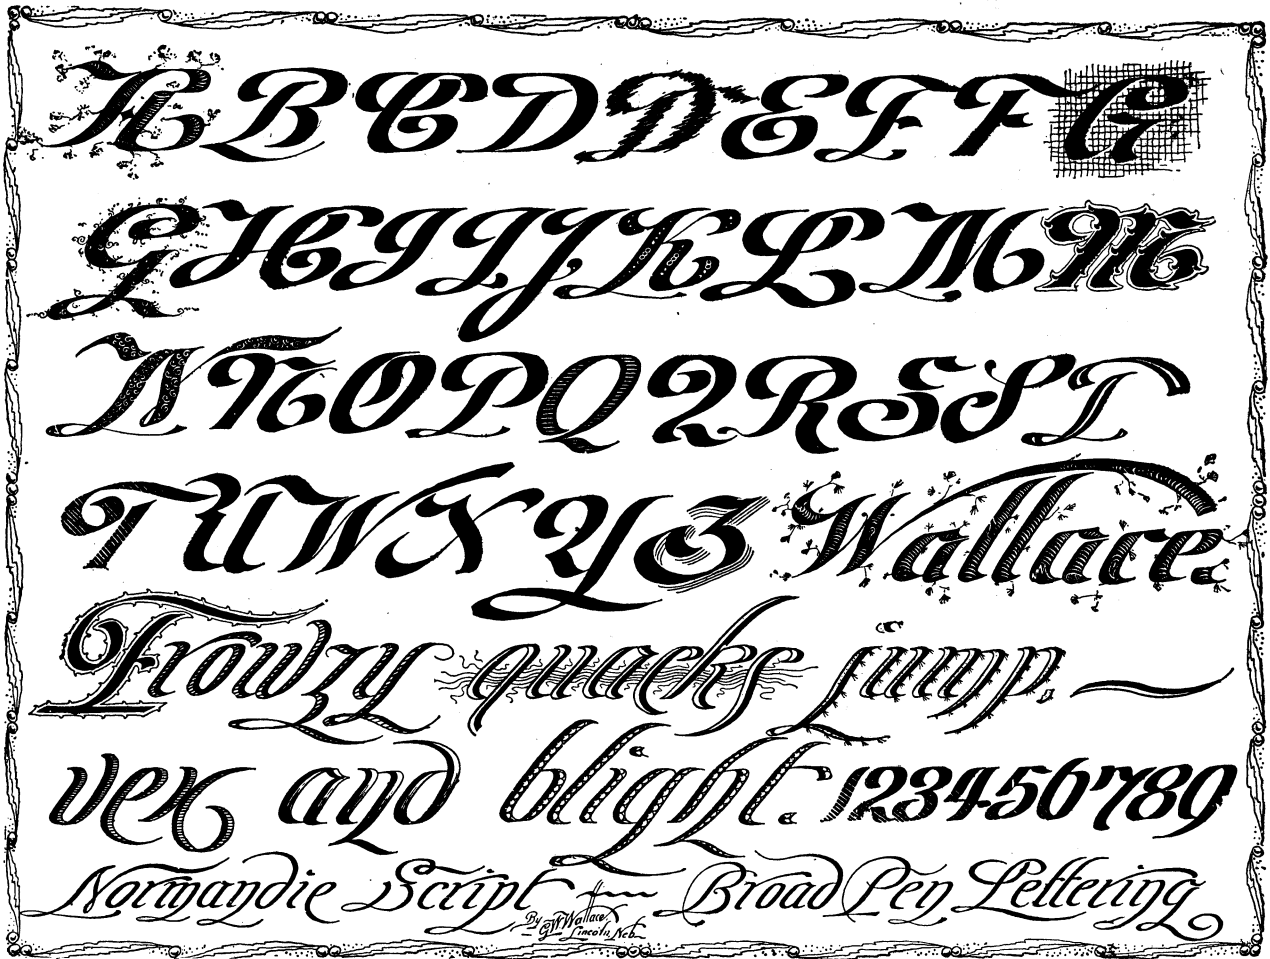 A B C D D E F F G
G H I I J K L M M
N N O P Q Q R S S T
T U W X Y Z Wallace.
Frowzy quacks jump,
vex and blight. 1234567890
Normandie Script Broad Pen Lettering
By G.W. Wallace
Lincoln, Neb.